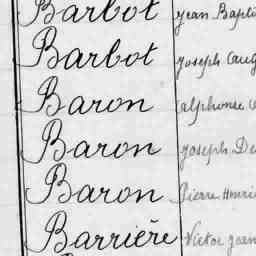 Barbot Jean Bapti
Barbot Joseph Aug
Baron Alphonse
Baron Joseph De
Baron Pierre Henri
Barrière Victor Jean